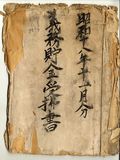 昭和十八年十一月分
義務貯金受払書